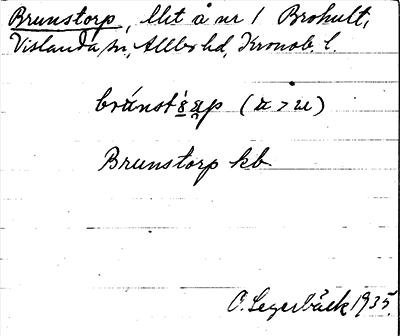 Brunstorp, lht å nr 1 Brohult,
Vislanda sn, Allbo hd, Kronob. l.
Brunstorp kb
O. Segerbäck 1935.